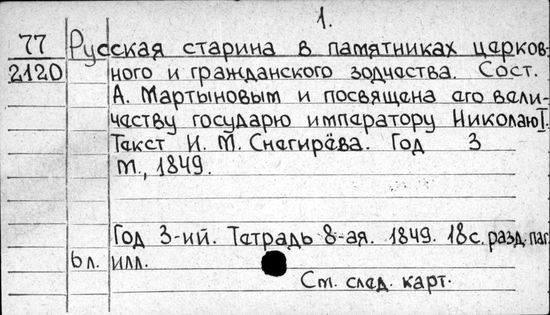 1.
77 Русская старина в памятниках церков-
2120 ного и гражданского зодчества. Сост.
А. Мартыновым и посвящена его вели-
честву государю императору Николаю I.
Текст И. М. Снегирёва. Год 3
М., 1849.
Год 3-ий. Тетрадь 8-ая. 1849. 18 с. разд. паг.
6 л. илл.
См. след. карт.